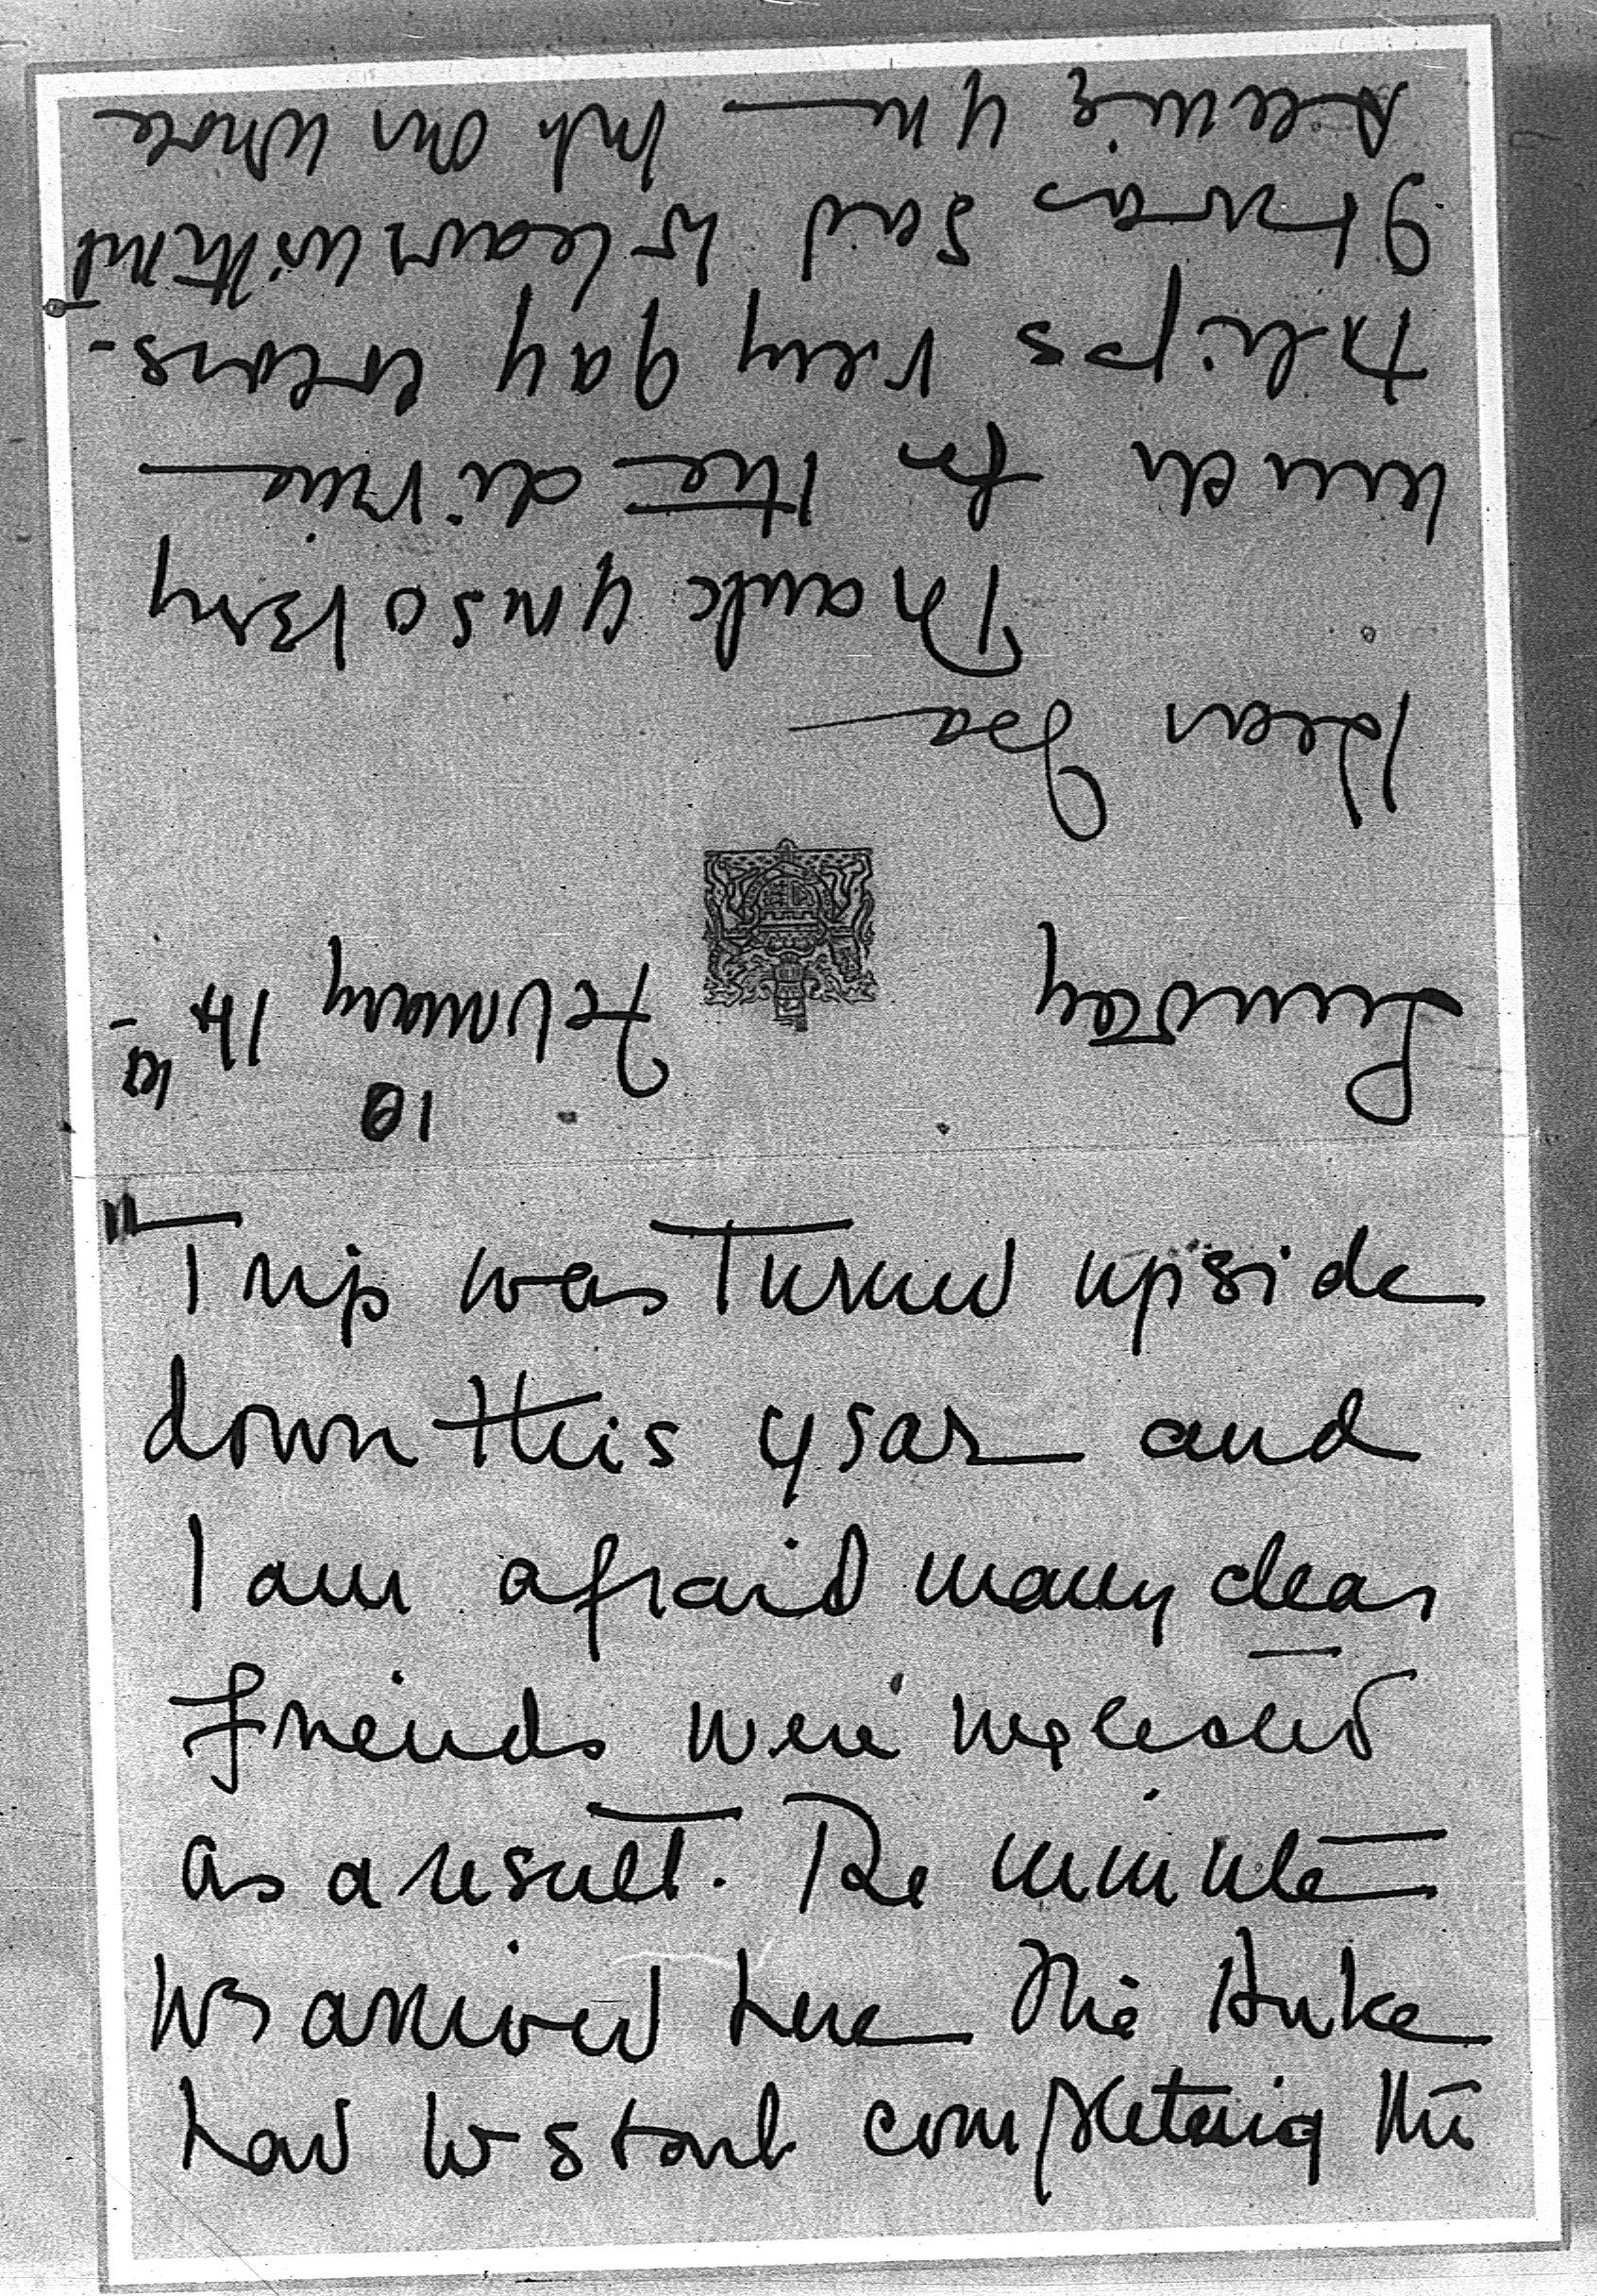 10
Sunday February 14th
Dear Isa
Thank you so very
much for the divine
tulips very gay colors -
It was sad to leave without
seeing you — but our whole
11
Trip was turned upside
down this year and
I am afraid many dear
friends were neglected
as a result. The minute
we arrived here the Duke
had to start completing the